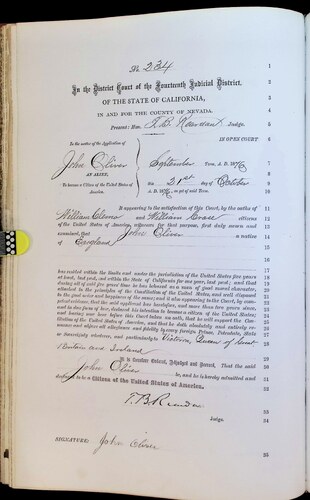 No. 234
In the District Court of the Fourteenth Judicial District.
OF THE STATE OF CALIFORNIA,
IN AND FOR THE COUNTY OF NEVADA.
Present: Hon. T. B. Reardan, Judge.
In the matter of the Application of
John Oliver
AN ALIEN,
To become a Citizen of the United States of
America.
IN OPEN COURT
September Term, A. D. 1876
this 21st day of October
A. D. 1876, in pt of said Term.
It appearing to the satisfaction of this Court, by the oaths of
William Clemo and William citizens
of the United States of America, witnesses for that purpose, first duly sworn and
examined, that John Oliver a native
of England
has resided within the limits and under the jurisdiction of the United States five years
at least, last past, and within the State of California for one year, last past; and that
during all of said five years time he has behaved as a man of good moral character,
attached to the principles of the Constitution of the United States, and well disposed
to the good order and happiness of the same; and it also appearing to the Court, by
competent evidence, that the said applicant has heretofore, more than two years since,
and in due form of law, declared his intention to become a citizen of the United States;
and having now here before this Court taken an oath, that he will support the
Constitution of the United States of America, and that he doth absolutely and entirely
renounce and abjure all allegiance and fidelity to every foreign Prince, Potentate, State
or Sovereignty whatever, and particularly to Victoria, Queen of Great
Britain and Ireland
It is therefore Ordered, Adjudged and Decreed, That the said
John Oliver be, and he is hereby admitted and
declared to be a Citizen of the United States of America.
T. B. Reardan
Judge.
SIGNATURE: John Oliver
1
2
3
4
5
6
7
8
9
10
11
12
13
14
15
16
17
18
19
20
21
22
23
24
25